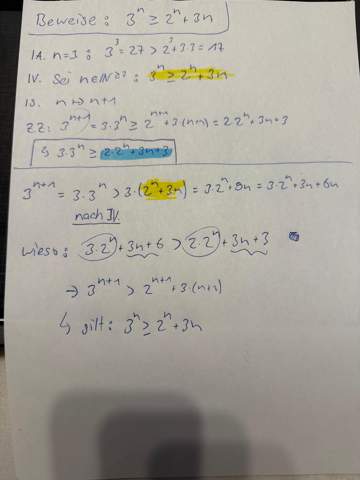 Beweise: 3^n ≥ 2^n + 3n
IA. n=3: 3^3 = 27 > 2^3 + 3·3 = 17
IV. Sei n∈N≥3: 3^n ≥ 2^n + 3n
IS. n ↦ n+1
ZZ: 3^{n+1} = 3·3^n ≥ 2^{n+1} + 3·(n+1) = 2·2^n + 3n + 3
↳ 3·3^n ≥ 2·2^n + 3n + 3
3^{n+1} = 3·3^n > 3·(2^n + 3n) = 3·2^n + 9n = 3·2^n + 3n + 6n
nach IV.
wieso: 3·2^n + 3n + 6 > 2·2^n + 3n + 3
→ 3^{n+1} > 2^{n+1} + 3·(n+1)
↳ gilt: 3^n ≥ 2^n + 3n